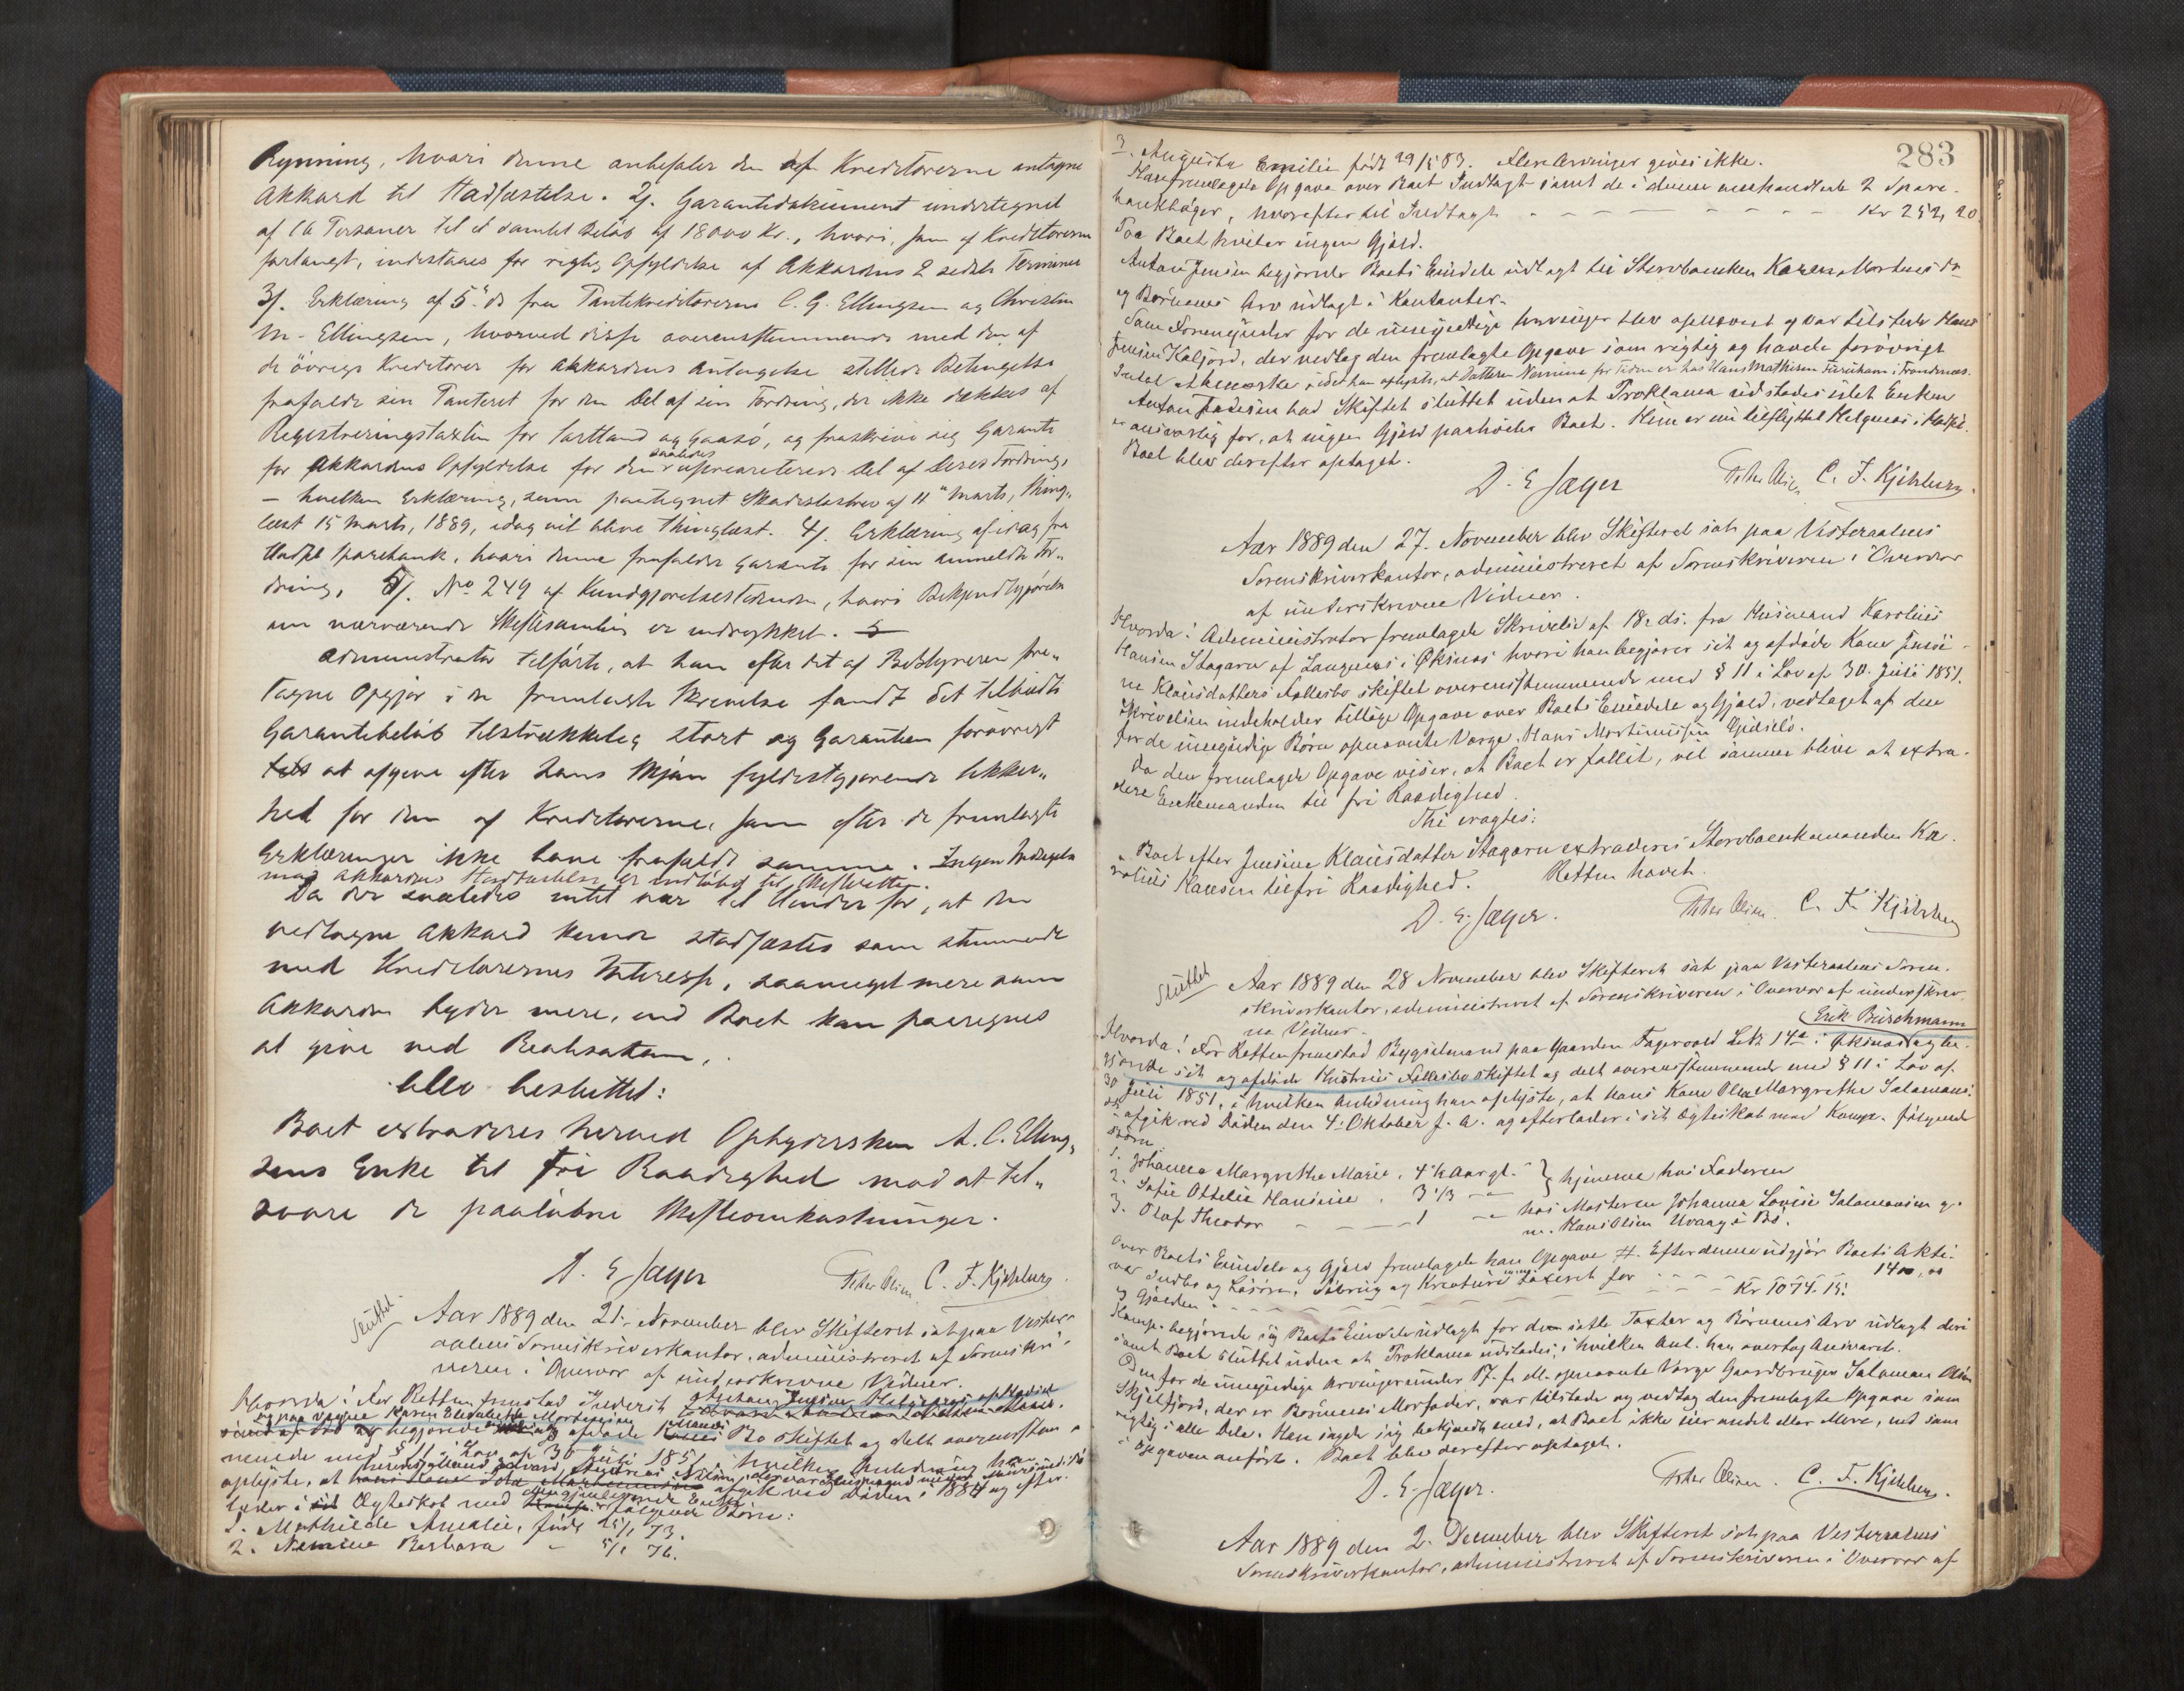 Rynning, hvori denne anbefaler den af Kreditorerne antagne
Akkord til Stadfæstelse. 2/. Garantidokument undertegnet
af 16 Personer til et samlet Beløb af 18000 Kr., hvori, som af Kreditorerne
forlangt, indestaaes for rigtig Opfyldelse af Akkordens 2 sidste Terminer
3/. Erklæring af 5te ds fra Pantekreditorerne C. G. Ellingsen og Christen
M. Ellingsen, hvorved disse overensstemmende med den af
de øvrige Kreditorer for Akkordens Antagelse stillede Betingelse
frafalde sin Panteret for den Del af sin Fordring, der ikke dækkes af
Registreringstaxten for Sortland og Gaasø, og fraskrive sig Garanti
for Akkordens Opfyldelse for den saaledes uprioriterede Del af deres Fordring,
– hvilken Erklæring, som paategnet Skadesløsbrev af 11te Marts, thing-
læst 15 Marts, 1889, idag vil blive thinglæst. 4/. Erklæring af idag fra
Hadsel Sparebank, hvori denne frafalder Garanti for sin anmeldte For-
dring. 5/. No 249 af Kundgjørelsestidende, hvori Bekjendtgjørelse
om nærværende Skiftesamling er indrykket.
Administrator tilførte, at han efter det af Bestyreren fore-
tagne Opgjør i den fremlagte Skrivelse fandt det tilbudte
Garantibeløb tilstrækkelig stort og Garantien forøvrigt
at afgive efter hans Skjøn fyldestgjørende Sikker-
hed for dem af Kreditorerne, som efter de fremlagte
Erklæringer ikke have frafaldt samme. Ingen Indsigelse
mod Akkordens Stadfæstelse er indløbet til Skifteretten.
Da der saaledes intet var til Hinder for, at den
vedtagne Akkord kunde stadfæstes som stemmende
med Kreditorernes Interesse, saameget mere som
Akkorden byder mere, end Boet kan paaregnes
at give ved Realisation,
blev besluttet:
Boet extraderes herved Opbydersken A. C. Elling-
sens Enke til fri Raadighed mod at til-
svare de paaløbne Skifteomkostninger.
D. E Jæger Peter Olsen C. F. Kjihlberg
Sluttet Aar 1889 den 21. November blev Skifteret sat paa Vester-
aalens Sorenskriverkontor, administreret af Sorenskri-
veren i Overvær af underskrevne Vidner.
Hvorda: For Retten fremstod Inderst Anton Jensen
og paa Vegne Karen Elisabetha Mortensdatter
begjærede afdøde Mands Bo skiftet og delt overensstem-
mende med § 11 i Lov af 30 Juli 1851, i hvilken Anledning han
oplyste, at afgik ved Døden i 1884 og efter-
lader i Ægteskab med Enke følgende Børn:
1. Mathilde Amalie, født 25/1 73.
2. Nemine Barbara – 5/1 76.
283
3. Augusta Emilie født 29/5 83. Flere Arvinger gives ikke.
Han fremlagde Opgave over Boets Indtægt samt de i denne omhandlede 2 Spare-
bankbøger, hvorefter til Indtægt – – – – Kr 252,20.
Paa Boet hviler ingen Gjæld.
Anton Jensen begjærede Boets Eiendele udlagt til Stervboenken Karen Mortensdr
og Børnenes Arv udlagt i Kontanter.
Som Formynder for de umyndige Arvinger blev opnævnt og var tilstede Hans
Jensen Kaljord, der vedtog den fremlagte Opgave som rigtig og havde forøvrigt
Intet at bemærke, idet han oplyste, at Datteren Nemine for Tiden er hos Hans Mathisen i Trondenæs.
Anton Jensen bad Skiftet sluttet uden at Proklama udstedes idet Enken
er ansvarlig for, at ingen Gjæld paahviler Boet. Hun er nu tilflyttet Melgenes i Hadsel.
Boet blev derefter optaget.
D. E Jæger Peter Olsen C. F. Kjihlberg.
Aar 1889 den 27. November blev Skifteret sat paa Vesteraalens
Sorenskriverkontor, administreret af Sorenskriveren i Overvær
af underskrevne Vidner.
Hvorda: Administrator fremlagde Skrivelse af 18. ds. fra Husmand Karolius
Hansen Stagarn af Langenes i Øksnes hvori han begjærer sit og afdøde Kone Jensi-
ne Klausdatters Fællesbo skiftet overensstemmende med § 11 i Lov af 30. Juli 1851.
Skrivelsen indeholder tillige Opgave over Boets Eiendele og Gjæld, vedtaget af den
for de umyndige Børn opnævnte Værge, Hans Mortinussen
Da den fremlagte Opgave viser, at Boet er fallit, vil samme blive at extra-
dere Enkemanden til fri Raadighed.
Thi eragtes:
Boet efter Jensine Klausdatter Stagarn extraderes Stervboenkemanden Ka-
rolius Hansen til fri Raadighed. Retten hævet.
D. E. Jæger. Peter Olsen. C. F. Kjihlberg
Sluttet Aar 1889 den 28 November blev Skifteret sat paa Vesteraalens Soren-
skriverkontor, administreret af Sorenskriveren i Overvær af underskrev-
ne Vidner. Erik Buschmann
Hvorda: For Retten fremstod Bygselmand paa Gaarden Fagervold Lbr 14a i Øksnes og be-
gjærede sit og afdøde Hustrues Fællesbo skiftet og delt overensstemmende med § 11 i Lov af
30 Juli 1851, i hvilken Anledning han oplyste, at hans Kone Olea Margrethe Salamons-
dr afgik ved Døden den 4. Oktober f. A. og efterlader i sit Ægteskab med Komp. følgende
Børn
1. Johanna Margrethe Marie, 4 1/2 Aar gl. } hjemme hos Faderen
2. Sofie Ottelie Hansine, 3 1/3 –
3. Olaf Theodor – – – 1 – hos Mosteren Johanna Lovise Salamonsen g.
m. Hans Olsen Uvaag i Bø.
Over Boets Eiendele og Gjæld fremlagde han Opgave #. Efter denne udgjør Boets Akti-
va Indbo og Løsøre, Søbrug og Kreature taxeret for – – – 1400,00
og Gjælden – – – – Kr 1074.15.
Komp. begjærede sig Boets Eiendele udlagt for den satte Taxter og Børnenes Arv udlagt deri
samt Boet sluttet uden at Proklama udstedes, i hvilken Anl. han overtog Ansvaret.
Den for de umyndige Arvinger under Pf. f. M. opnævnte Værge Gaardbruger Salamon Olsen
Skjelfjord, der er Børnenes Morfader, var tilstede og vedtog den fremlagte Opgave som
rigtig i alle Dele. Han sagde sig bekjendt med, at Boet ikke eier andet eller Mere, end som
i Opgaven anført. Boet blev derefter optaget.
D. E. Jæger. Peter Olsen. C. F. Kjihlberg.
Aar 1889 den 2. December blev Skifteret sat paa Vesteraalens
Sorenskriverkontor, administreret af Sorenskriveren i Overvær af